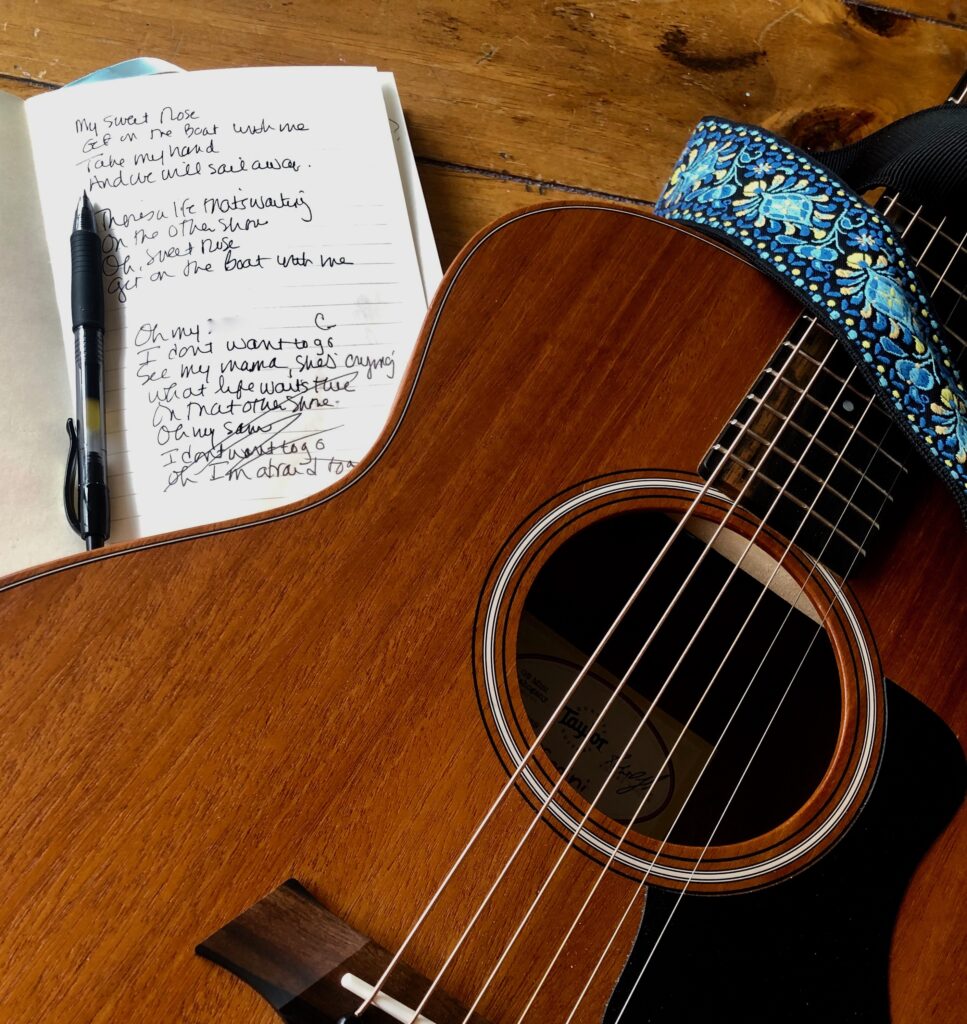 My Sweet Rose
Get on the Boat with me
Take my hand
And we will sail away.
Theres a life thats waiting
On the other shore
Oh, Sweet Rose
Get on the Boat with me
Oh my:
G
I dont want to go
See my mama, shes crying
What life waits
On that other shore.
Oh my
I dont want to go
Oh I'm afraid to
Taylor